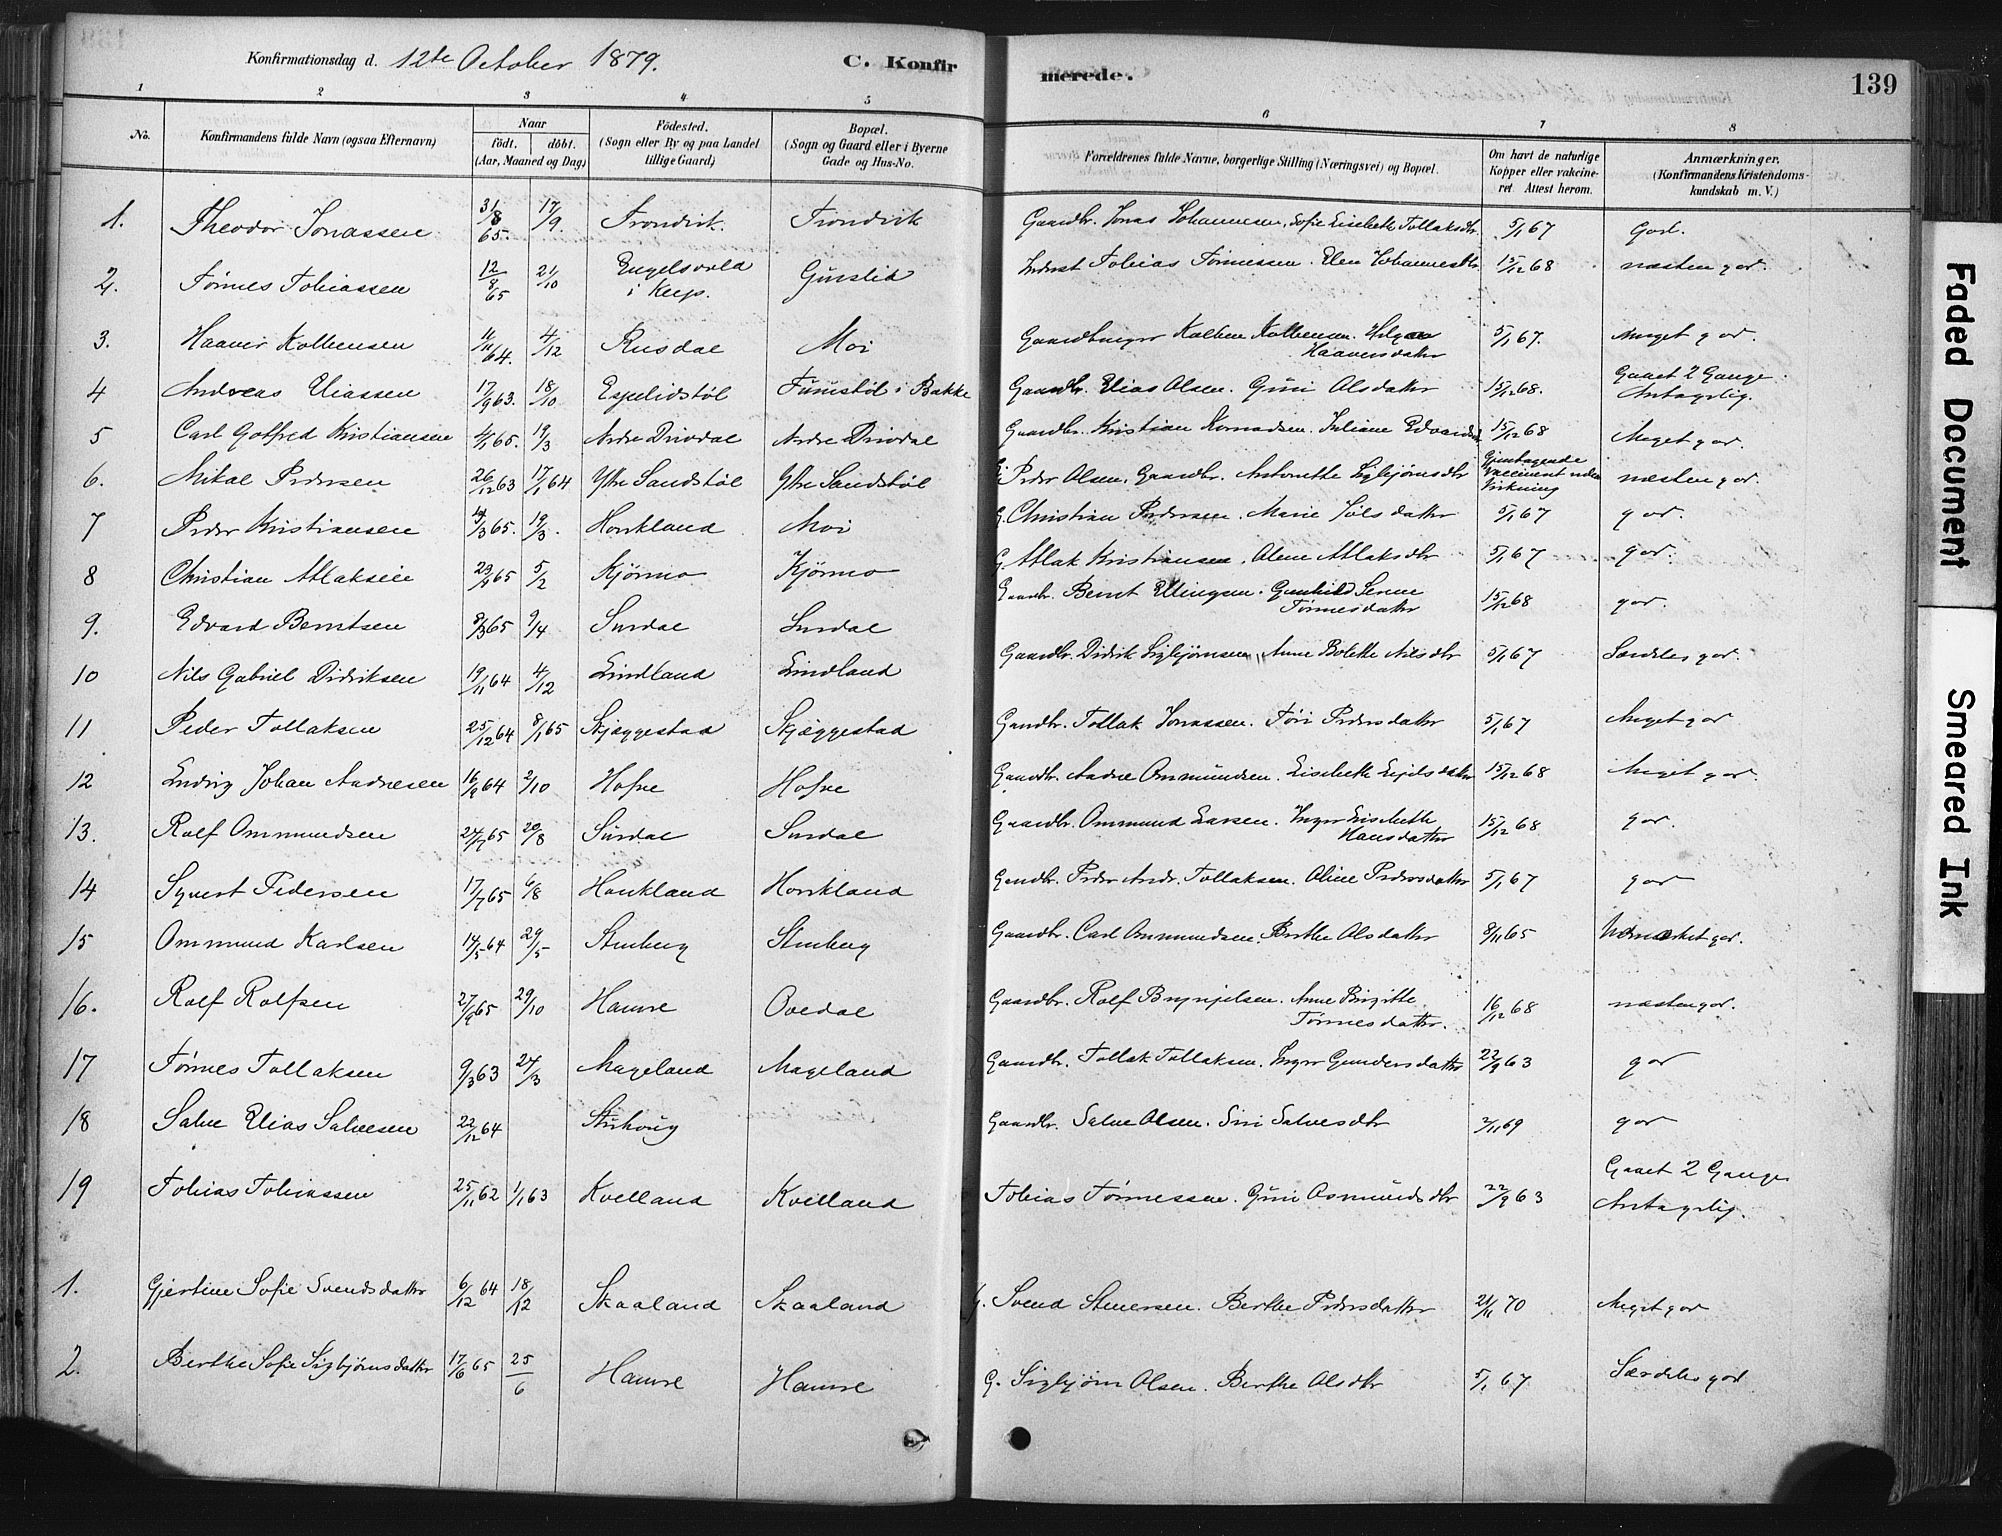 Konfirmationsdag d. 12te October 1879. C. Konfirmerede. 139
1 2 3 4 5 6 7 8
No. Konfirmandens fulde Navn (ogsaa Efternavn) Naar födt. döbt. (Aar, Maaned og Dag) Födested. (Sogn eller By og paa Landet tillige Gaard) Bopæl. (Sogn og Gaard eller i Byerne Gade og Hus-No. Forældrenes fulde Navne, borgerlige Stilling (Næringsvei) og Bopæl. Om havt de naturlige Kopper eller vakcineret. Attest herom. Anmærkninger. (Konfirmandens Kristendomskundskab m. V.)
1. Theodor Jonassen 31/8 65. 17/9. Trondvik. Trondvik Gaardbr. Jonas Johannesen, Sofie Lisebeth Tollaksdtr. 5/1 67 God.
2. Tønnes Tobiassen 12/8 65 21/10 Engelsvold i Klep. Tobias Tønnessen. Elen Johannesdtr 15/12 68 næsten god.
3. Kolbensen 11/11 64. 4/12 Rusdal Moi Gaardbruger Haaversdatter 5/1 67. Meget god.
4 Andreas Eliassen 17/9 63. 18/10 Espelidstøl i Bakke Gaardbr. Elias Olsen. Guri Olsdatter 15/12 68. Gaaet 2 Gange. Antagelig.
5 Carl Gotfred Kristiansen 65. 19/3 Kristian 15/12 68 Meget god.
6. Mikal Pedersen 26/12 63 17/1 64 Ytre Sandstøl Ytre Sandstøl Peder Olsen, Gaardbr. Antonette Sigbjørnsdtr Gjentagende vaccineret uden Virkning næsten god.
7 Peder Kristiansen 65. 19/3. Honkland Moi G. Christian Pedersen. Marie 5/1 67 god.
8 Christian Atlaksen 65 5/2 Kjørmo Kjørmo G. Atlak Kristiansen, Atlaksdtr 5/1 67 god.
9. Edvard Berntsen 8/3 65 9/4 Surdal Surdal Gaardbr. Bernt Ellingsen. Gunhild Serine Tønnesdatter 15/12 68 god.
10 Nils Gabriel Didriksen 19/11 64 4/12 Lindland Lindland Gaardbr. Didrik Sigbjørnsen, Anne Bolette Nilsdtr 5/1 67 Særdeles god.
11 Peder Tollaksen 25/12 64 8/1 65 Skjæggestad Skjæggestad Gaardbr. Tollak Jonassen. Pedersdatter 5/1 67 Meget god
12 Ludvig Johan Andresen 16/9 64 2/10 Hofve Hofve Gaardbr. Andre Ommundsen. Lisebette 15/12 68 Meget god.
13. Rolf Ommundsen 24/7 65 20/8 Surdal Surdal Gaardbr. Ommund Larsen. Inger Lisebette Hansdatter 15/12 68 god.
14 Syvert Pedersen 17/7 65 6/8 Honkland Honkland Gaardbr. Peder Andr. Tollaksen. Oline Pedersdatter 5/1 67 god
15 Ommund Karlsen 14/5 64 29/5 Stenberg Stenberg Gaardbr. Carl Ommundsen. Berthe Olsdatter 8/11 65 Udmærket god.
16. Rolf Rolfsen 27/9 65 29/10 Hamre Ovedal Gaardbr. Rolf Brynjelsen. Anne Birgitte Tønnesdatter. 16/12 68 næsten god.
17 Tønnes Tollaksen 9/3 63 24/3 Mageland Mageland Gaardbr. Tollak Tollaksen. Inger Gundersdatter 22/9 63 god
18 Salve Elias Salvesen 22/12 64 Gaardbr. Salve Olsen. Siri Salvesdtr 2/11 69 god
19 Tobias Tobiassen 25/11 62 1/1 63 Kvelland Kvelland Tobias Tønnessen. Guri Osmundsdtr 22/9 63 Gaaet 2 Gange Antagelig.
1. Gjertine Sofie Svendsdatter 6/12 64 18/12 Skaaland Skaaland G. Svend Stenersen. Berthe Pedersdatter 70 Meget god
2. Berthe Sofie Sigbjørnsdatter 17/6 65 25/6 Hamre Hamre G. Sigbjørn Olsen. Berthe Olsdtr 5/1 67 Særdeles god
Faded Document
Smeared Ink